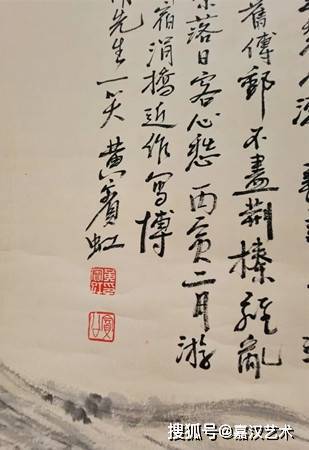 舊傳郵不盡荆榛雜亂
落日客心愁丙寅二月游
宿涓橋近作寫博
先生一笑黄賓虹
搜狐号@嘉汉艺术